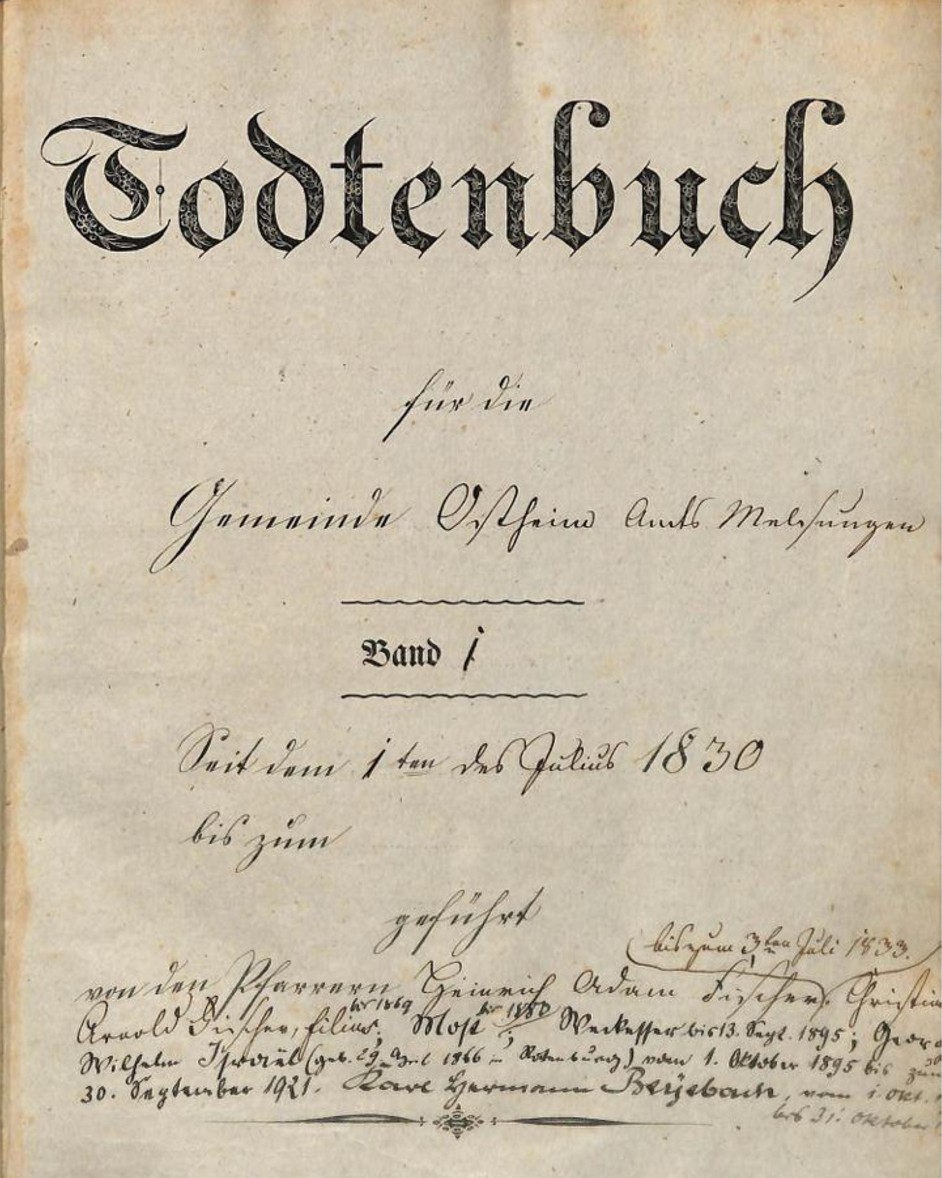 Todtenbuch
für die
Gemeinde Ostheim Amts Melsungen
Band 1
Seit dem 1ten des Julius 1830
bis zum
geführt
bis zum 3ten Juli 1833.
von den Pfarrern Heinrich Adam Fischer, Christian
bis 1869 bis 1880
Arnold Fischer, filius; Most; Weckesser bis 13. Sept. 1895; Georg
Wilhelm (geb. 29. April 1866 in Rotenburg) vom 1. Oktober 1895 bis zum
30. September 1921. Karl Hermann vom 1. Okt.
bis 31. Oktober